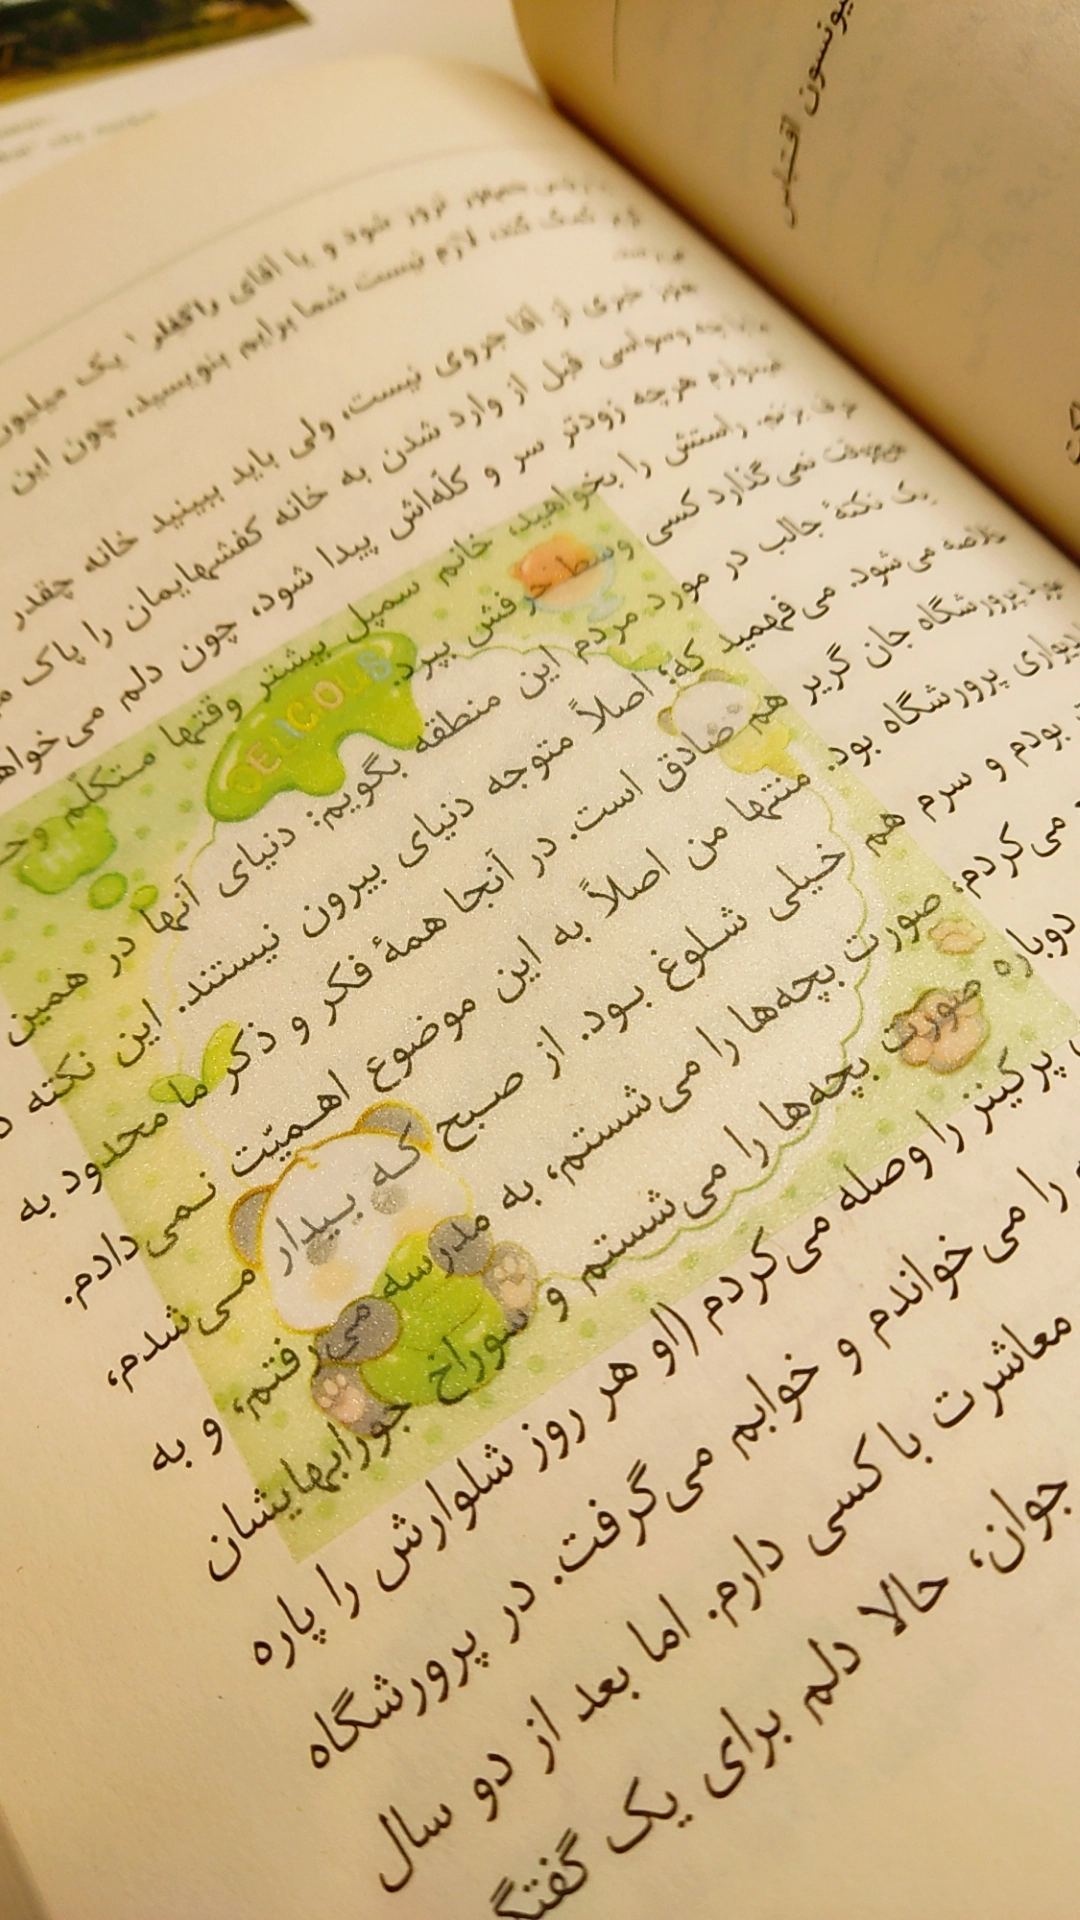 یونسون اقتباس
ترور شود و یا آقای راکفلر ۱ یک میلیون
کمک کند، لازم نیست شما برایم بنویسید، چون این
خبری از آقا جروی نیست، ولی باید ببینید خانه چقدر
چه وسواسی قبل از وارد شدن به خانه کفشهایمان را پاک
هرچه زودتر سر و کله‌اش پیدا شود، چون دلم می‌خواهد
حرف بزنم. راستش را بخواهید، خانم سمپل بیشتر وقتها متکلّم
هیچوقت نمی‌گذارد کسی وسط حرفش بپرد.
یک نکتهٔ جالب در مورد مردم این منطقه بگویم: دنیای آنها در همین
خلاصه می‌شود. می‌فهمید که؛ اصلاً متوجه دنیای بیرون نیستند. این نکته
پرورشگاه جان گریر هم صادق است. در آنجا همهٔ فکر و ذکر ما محدود به
پرورشگاه بود. منتها من اصلاً به این موضوع اهمیّت نمی‌دادم.
بودم و سرم هم خیلی شلوغ بود. از صبح که بیدار می‌شدم،
می‌کردم، صورت بچه‌ها را می‌شستم، به مدرسه می‌رفتم، و به
دوباره صورت بچه‌ها را می‌شستم و سوراخ جورابهایشان
پرکینز را وصله می‌کردم (او هر روز شلوارش را پاره
را می‌خواندم و خوابم می‌گرفت. در پرورشگاه
معاشرت با کسی دارم. اما بعد از دو سال
جوان، حالا دلم برای یک
DELICIOUS